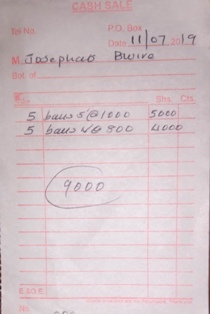 CASH SALE
Tel No.
P.O. Box
Date 11/07 2019
M Josephat Bwire
Shs. Cts.
5 5 @ 1000 5000
5 4 @ 800 4000
9000
E.&O.E.
No.